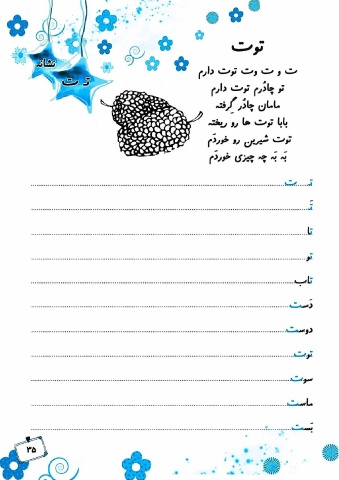 نشانه
تـ ت
توت
ت و ت وت توت دارم
تو چادُرم توت دارم
مامان چادُر گِرفته
بابا توت ها رو ریخته
توت شیرین رو خوردَم
بَه بَه چه چیزی خوردَم
تـ ت
تَـ
تا
تو
تاب
دَست
دوست
توت
سوت
ماست
بَست
۳۵